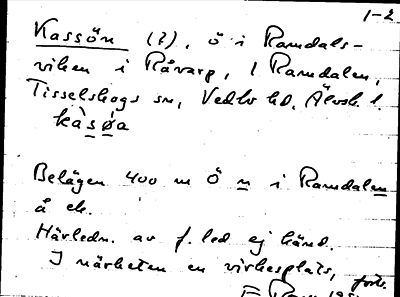 1-2
Kassön (?), ö i Ramdals-
viken i Råvarp, l Ramdalen,
Tisselskogs sn, Vedbo hd, Älvsb. l.
kàsǿa
Belägen 400 m Ö n i Ramdalen
å ek.
Härledn. av f. led ej känd.
I närheten en virkesplats,
forts.